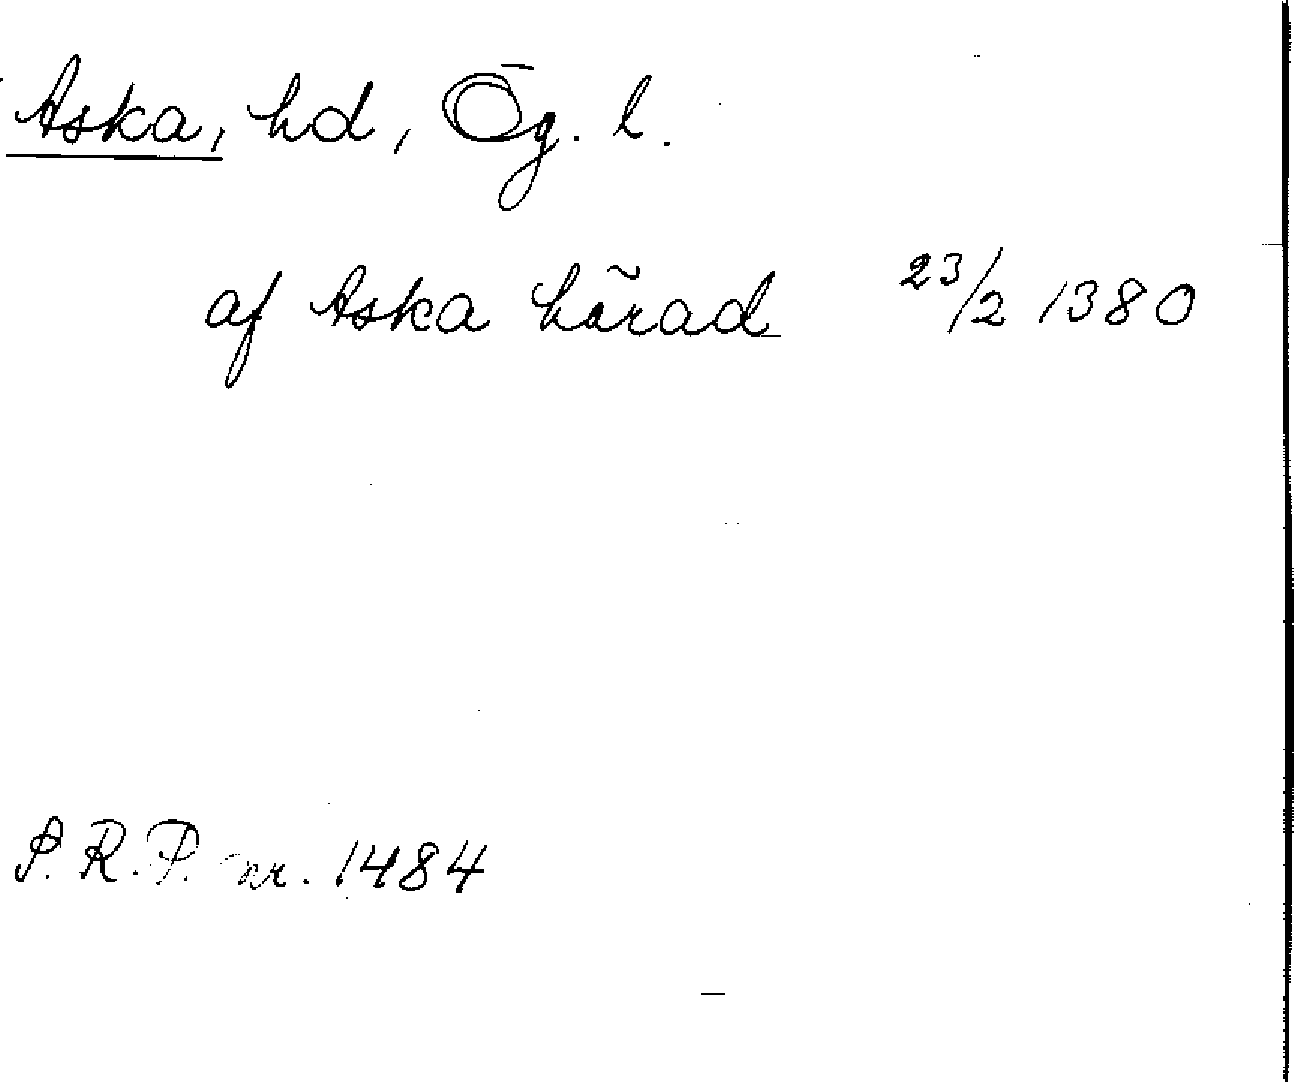 Aska, hd, Ög. l.
af Aska härad 23/2 1380
S.R.P. nr. 1484